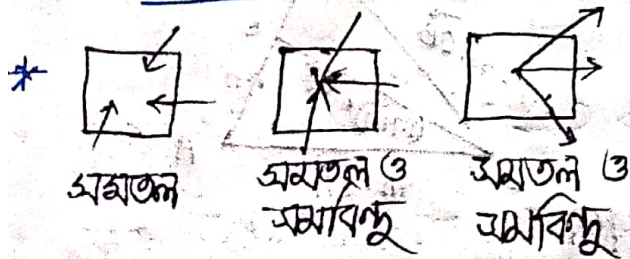 *
সমতল
সমতল ও
সমবিন্দু
সমতল ও
সমবিন্দু